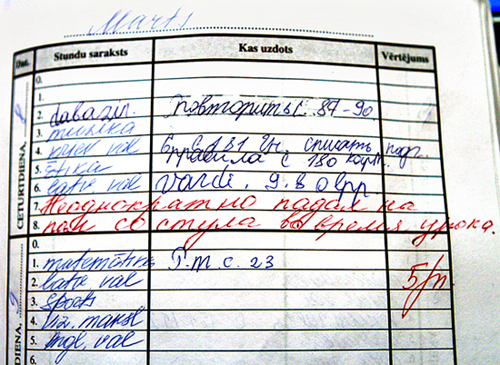 Marts
Stundu saraksts Kas uzdots Vērtējums
CETURTDIENA, 8
0.
1.
2. dabazin. Повторить с. 87-90
3. mūzika
4. krievu val с. 181 Упр. списать
правила с 180
5. ētika
6. latv val Vārdi. 9.
7. Неоднократно падал на
8. пол со стула во время урока.
DIENA, 9
0.
1. matemātika Р.т. с. 23
2. latv val
3. sports
4. viz. māksl
5. angl. val
6.